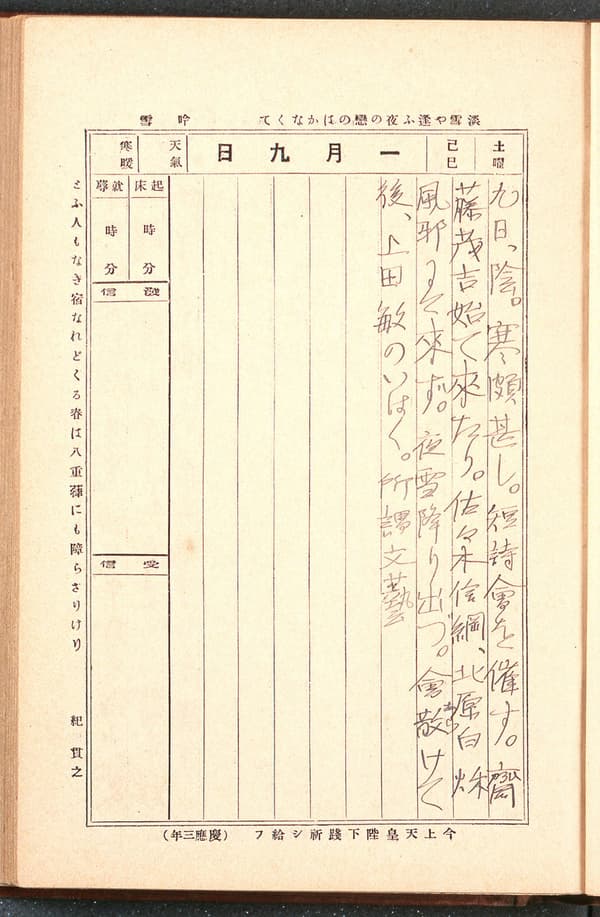 淡雪や逢ふ夜の戀のはかなくて　吟雪
土曜
己巳
一月九日
天氣
寒暖
九日、陰。寒頗甚し。短詩會を催す。齋
藤茂吉始て來たり。佐々木信綱、北原白秌
風邪にて來ず。夜雪降り出づ。會散けて
後、上田敏のいはく。所謂文藝
起床　時　分
就蓐　時　分
發信
受信
とふ人もなき宿なれどくる春は八重葎にも障らざりけり　紀貫之
今上天皇陛下踐祚シ給フ（慶應三年）